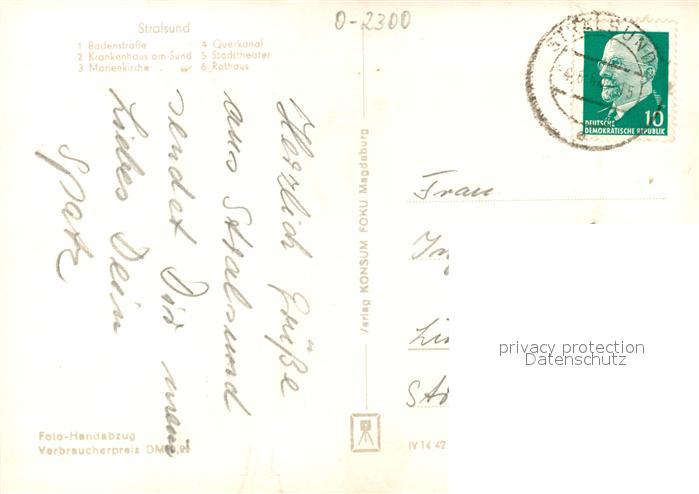 O-2300
Stralsund
1 Badenstraße
2 Krankenhaus am Sund
3 Marienkirche
4 Querkanal
5 Stadttheater
6 Rathaus
Herzlich Grüße
aus Stralsund
sendet Dir mein
Liebes Dein
Spatz
Verlag KONSUM FOKU Magdeburg
STRALSUND
10
DEUTSCHE
DEMOKRATISCHE REPUBLIK
Frau
privacy protection
Datenschutz
Foto-Handabzug
Verbraucherpreis DM
IV 14 42